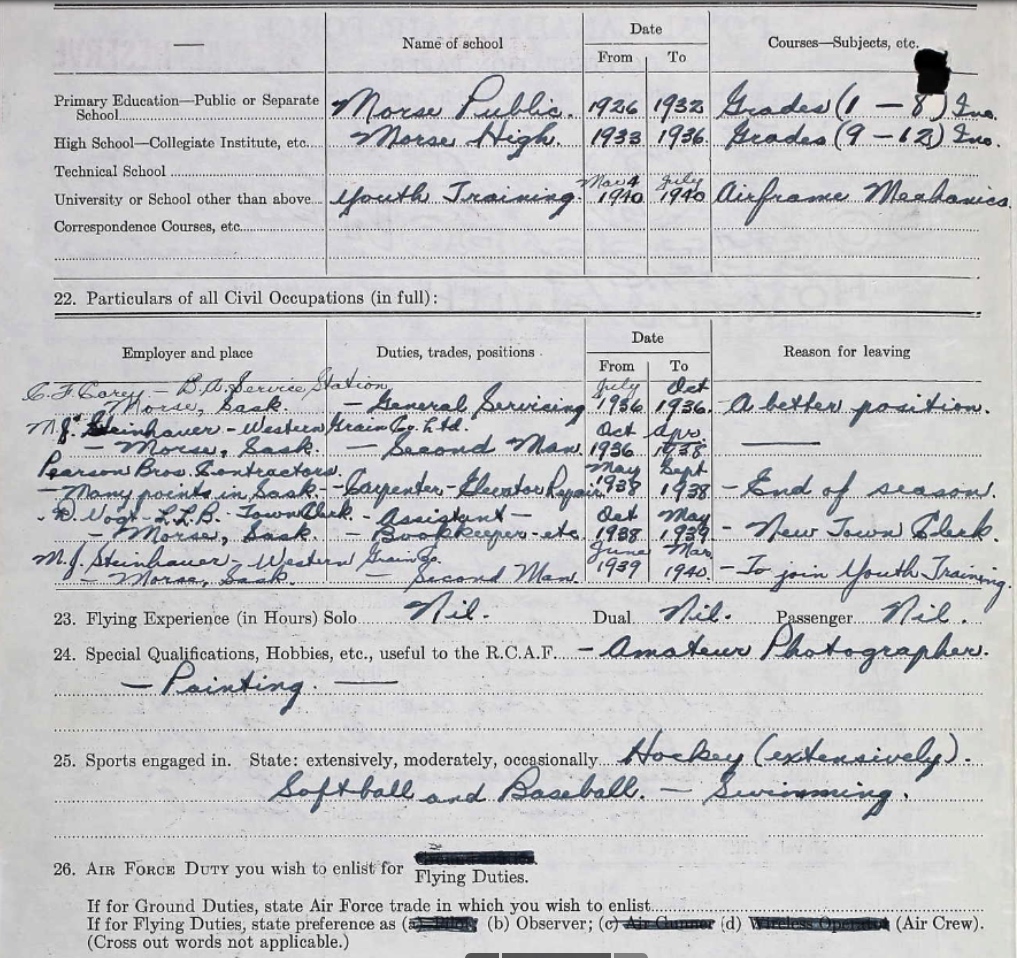 Name of school Date Courses—Subjects, etc.
From To
Primary Education—Public or Separate
School Morse Public. 1926 1932 Grades (1 – 8) Inc.
High School—Collegiate Institute, etc. Morse High. 1933 1936 Grades (9 – 12) Inc.
Technical School
Mar 4 July
University or School other than above Youth Training. 1940 1940 Airframe Mechanics.
Correspondence Courses, etc.
22. Particulars of all Civil Occupations (in full):
Employer and place Duties, trades, positions Date Reason for leaving
From To
C. F. Carey – B.A. Service Station July Oct
Morse, Sask. – General Servicing 1936 1936. – A better position.
M.J. Steinhauer – Western Grain Co. Ltd. Oct Apr.
– Morse, Sask. – Second Man. 1936 1938 ———
Pearson Bros. Contractors. May Sept
– Many points in Sask. – Carpenter – Elevator Repair 1938 1938 – End of season.
Vogt – L.L.B. – Town Clerk – Assistant – Oct May
– Morse, Sask. – Bookkeeper – etc 1938 1939 – New Town Clerk.
M.J. Steinhauer – Western Grain Co. June Mar.
– Morse, Sask. – Second Man. 1939 1940. – To join Youth Training.
23. Flying Experience (in Hours) Solo Nil. Dual Nil. Passenger Nil.
24. Special Qualifications, Hobbies, etc., useful to the R.C.A.F. – Amateur Photographer.
– Painting. ——
25. Sports engaged in. State: extensively, moderately, occasionally Hockey (extensively).
Softball and Baseball. – Swimming.
26. AIR FORCE DUTY you wish to enlist for
Flying Duties.
If for Ground Duties, state Air Force trade in which you wish to enlist
If for Flying Duties, state preference as (a) Pilot (b) Observer; (c) Air Gunner (d) Wireless Operator (Air Crew).
(Cross out words not applicable.)